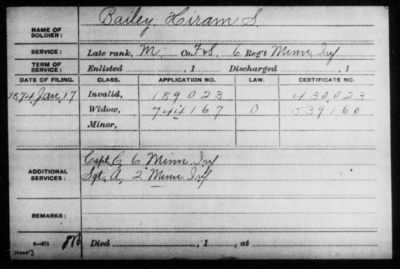 NAME OF SOLDIER: Bailey, Hiram S.
SERVICE: Late rank, M, Co. F & S, 6 Reg't Minn. Inf
TERM OF SERVICE: Enlisted , 1 Discharged , 1
DATE OF FILING. CLASS. APPLICATION NO. LAW. CERTIFICATE NO.
1874 Jan. 17 Invalid, 189023 430,023
Widow, 744167 D 539160
Minor,
ADDITIONAL SERVICES: Capt. G 6 Minn. Inf
Sgt. A, 2 Minn. Inf
REMARKS:
Died , 1 , at